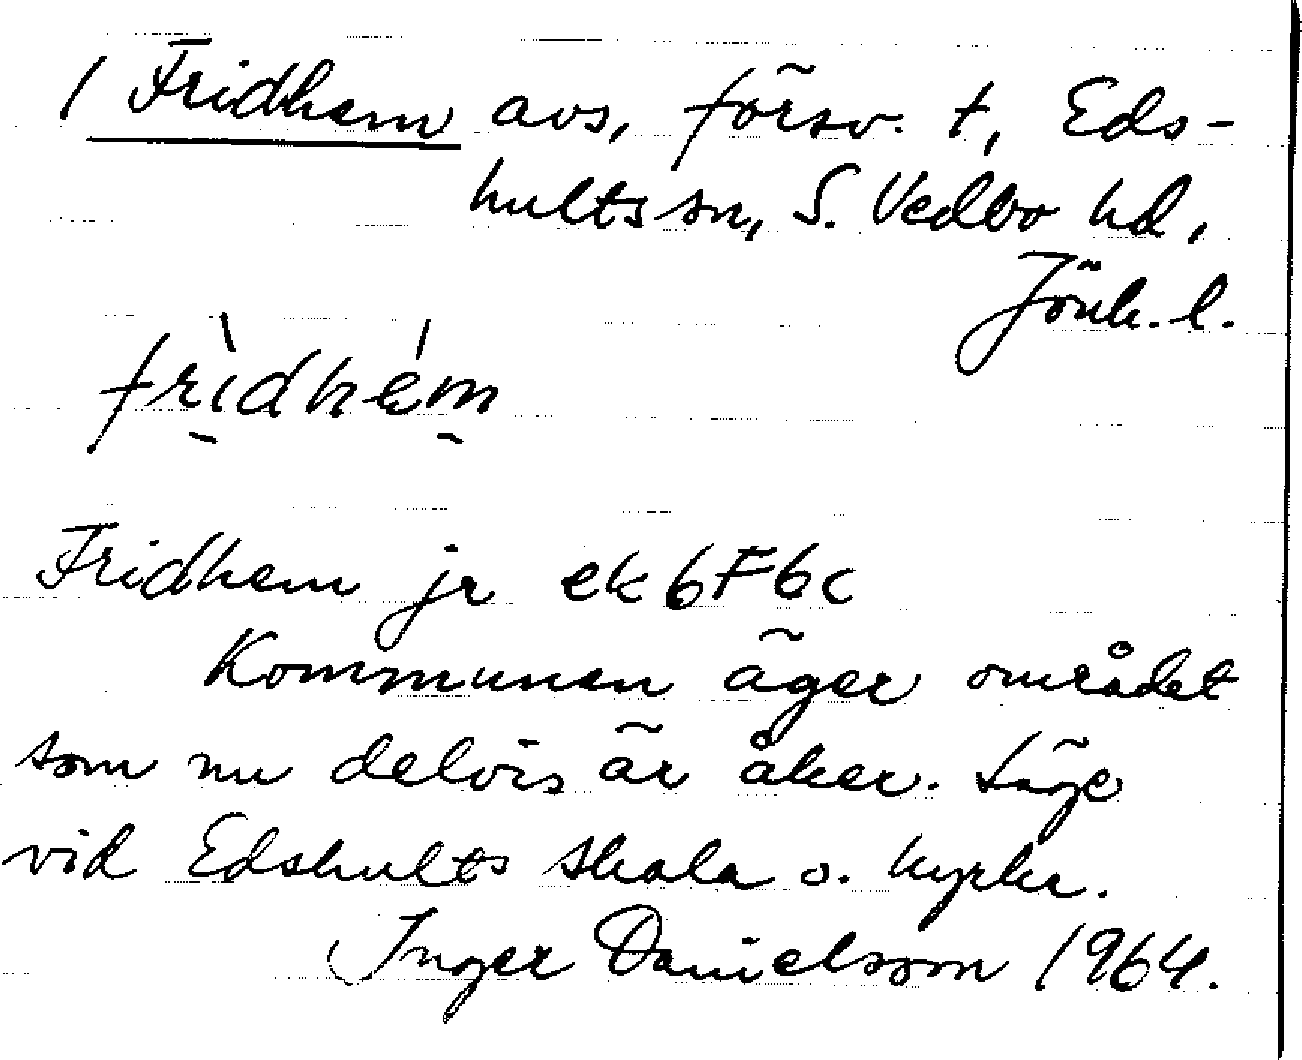 / Fridhem avs, försv. t, Eds-
hults sn, S. Vedbo hd,
Jönk. l.
frìdhém
Fridhem jr ek 6F6c
Kommunen äger området
som nu delvis är åker. Läge
vid Edshults skola o. kyrka.
Inger Danielsson 1964.